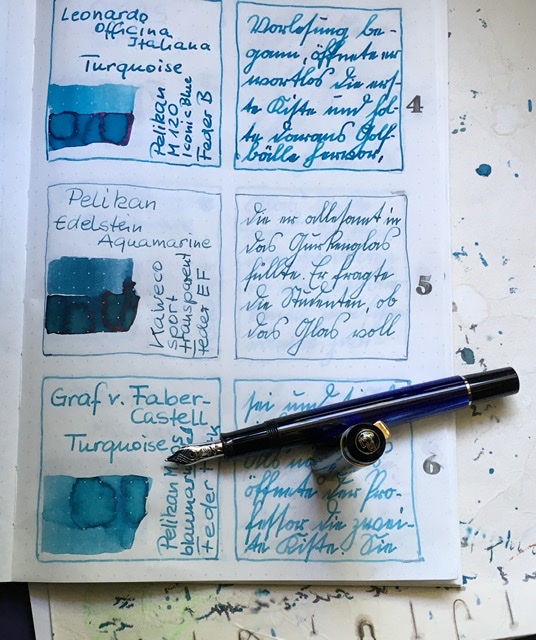 Leonardo
Officina
Italiana
Turquoise
Pelikan
M120
Iconic Blue
Feder B
Vorlesung be-
gann, öffnete er
wortlos die ers-
te Kiste und hol-
te daraus Golf-
bälle hervor,
4
Pelikan
Edelstein
Aquamarine
Kaweco
sport
transparent
Feder EF
die er allesamt in
das Gurkenglas
füllte. Er fragte
die Studenten, ob
das Glas voll
5
Graf v. Faber-
Castell
Turquoise
Pelikan
Feder
sei und
öffnete der Pro-
fessor die zwei-
te Kiste. Sie
6